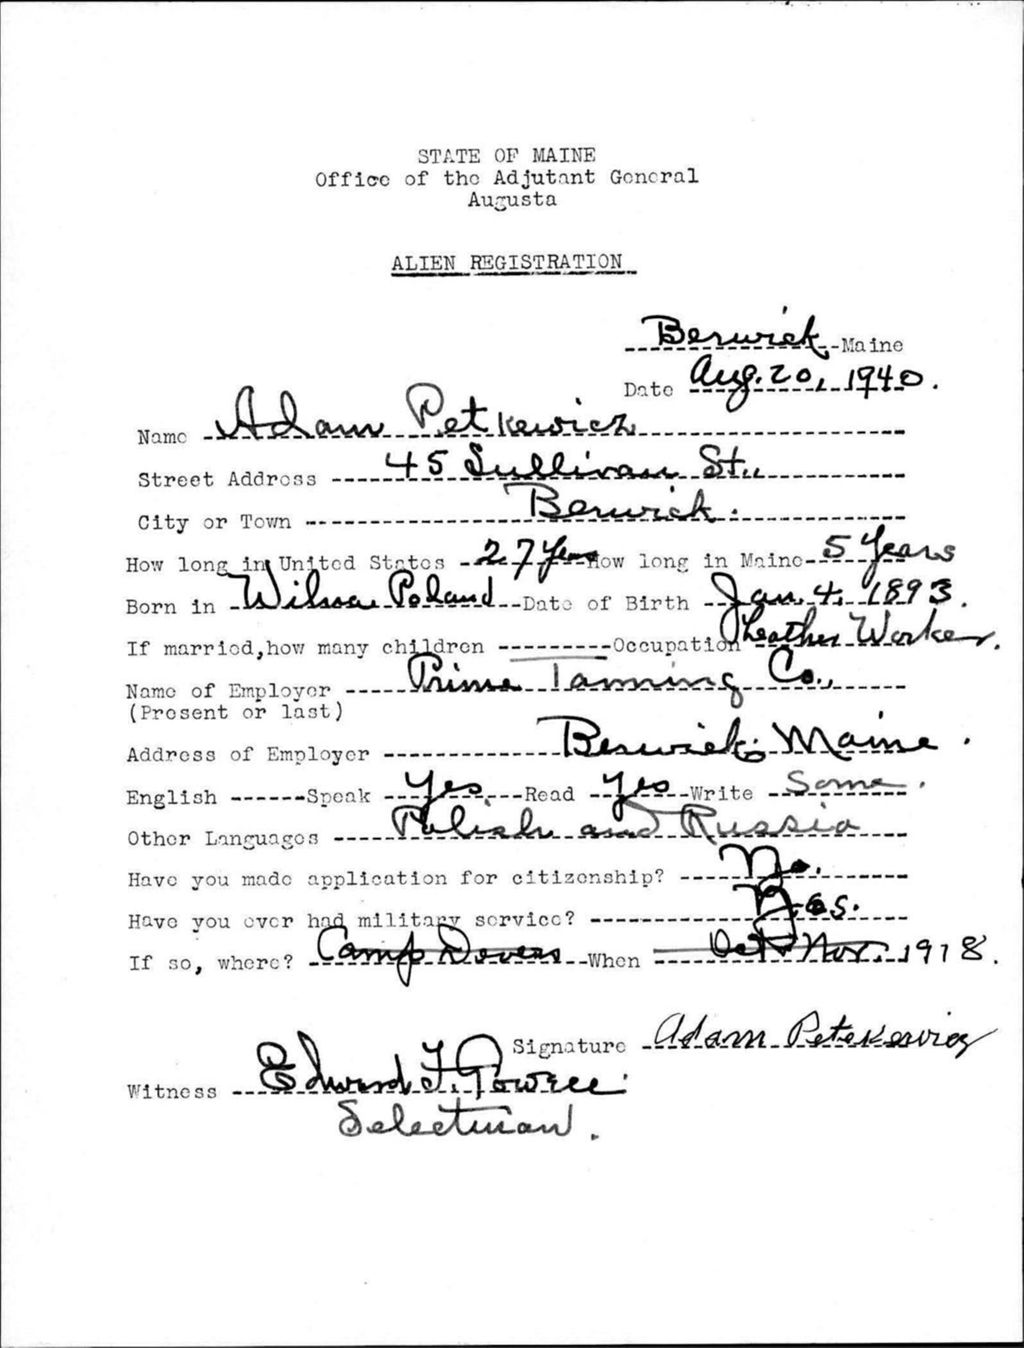 STATE OF MAINE
Office of the Adjutant General
Augusta
ALIEN REGISTRATION
Berwick Maine
Date Aug. 20, 1940.
Name Adam Petkewicz
Street Address 45 Sullivan St.,
City or Town Berwick.
How long in United States 27 Years How long in Maine 5 Years
Born in Wilna Poland Date of Birth Jan. 4, 1893.
If married, how many children Occupation Leather Worker.
Name of Employer Prime Tanning Co.,
(Present or last)
Address of Employer Berwick, Maine.
English Speak Yes Read Yes Write Some.
Other Languages Polish and Russia
Have you made application for citizenship? No.
Have you ever had military service? Yes.
If so, where? Camp Devens When Oct. Nov. 1918.
Signature Adam Petekewicz
Witness Edward F. Powell
Selectman.